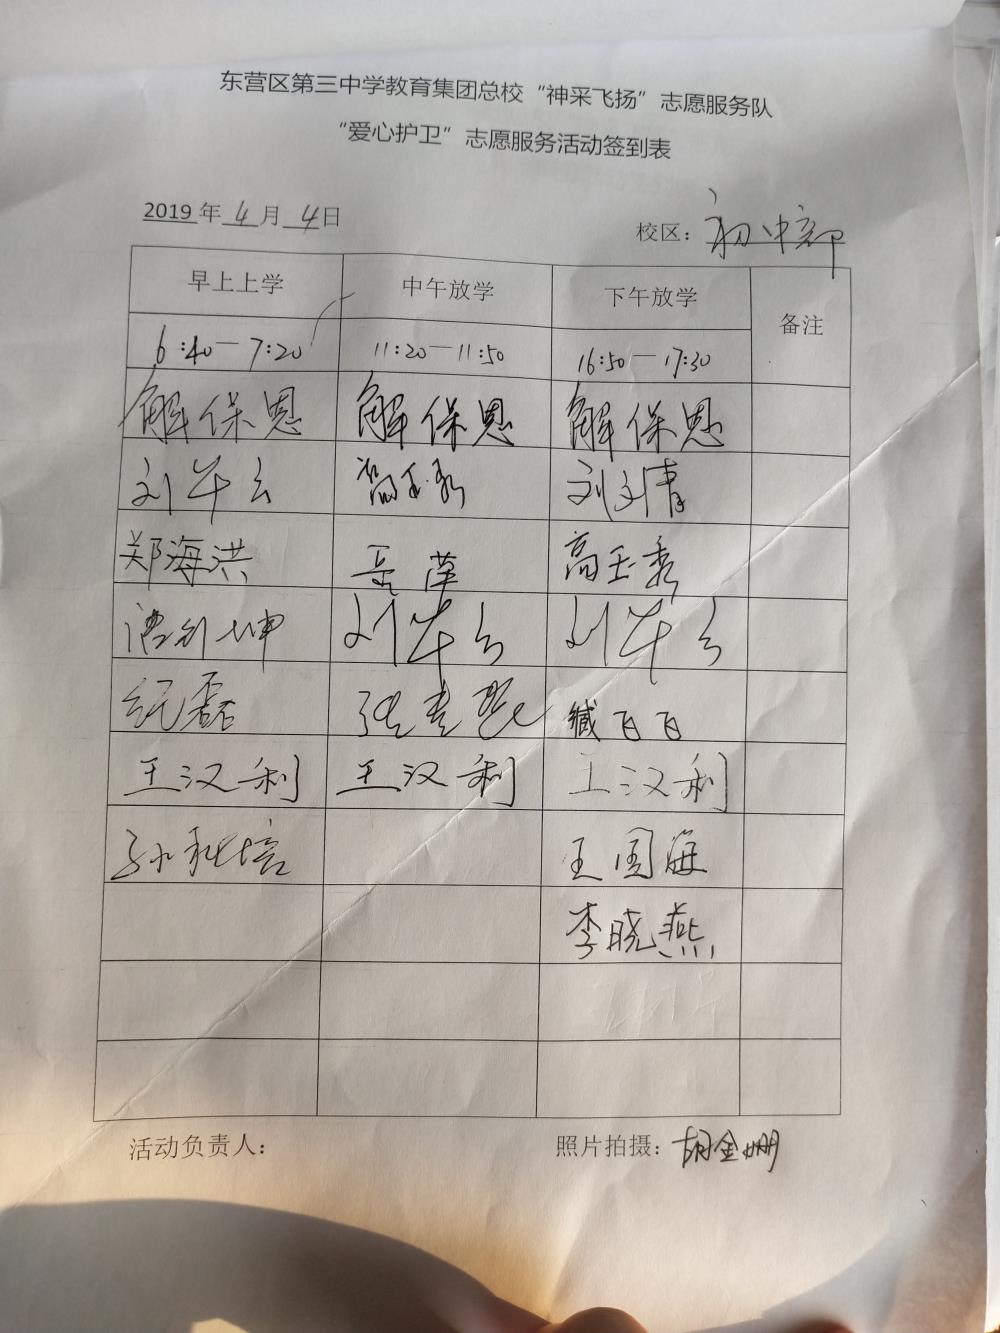 东营区第三中学教育集团总校“神采飞扬”志愿服务队
“爱心护卫”志愿服务活动签到表
2019年 4月 4日 校区：初中部
早上上学 中午放学 下午放学 备注
6:40—7:20 11:20—11:50 16:50—17:30
解保恩 解保恩 解保恩
刘华云 高玉秀 刘文清
郑海洪 岳萍 高玉秀
刘华云 刘华云
纪磊 臧飞飞
王汉利 王汉利 王汉利
王国海
李晓燕
活动负责人： 照片拍摄：胡金姗